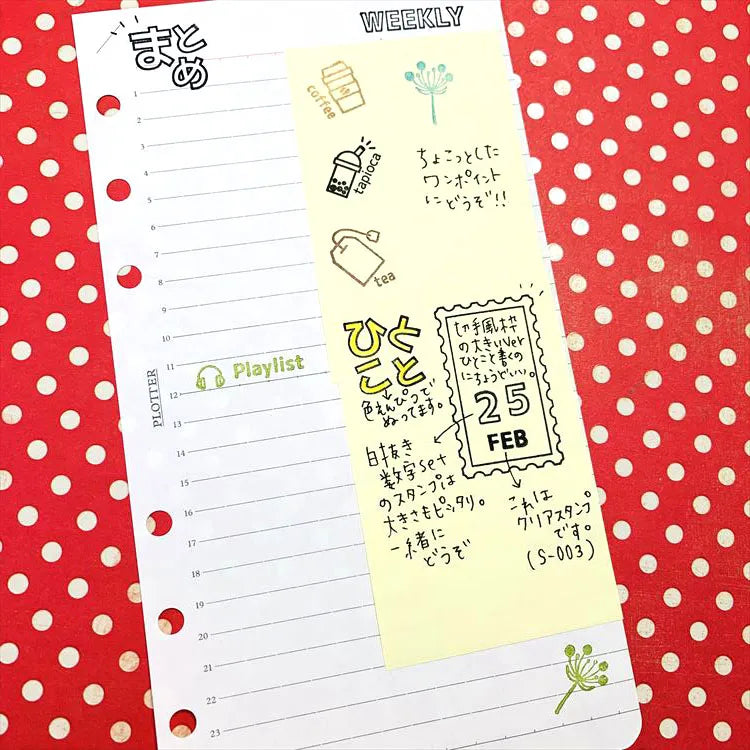 まと
め
WEEKLY
coffee
tapioca
ちょこっとした
ワンポイント
にどうぞ!!
tea
ひと
こと
色えんぴつで
ぬってます。
切手風枠
の大きいver
ひとこと書くの
にちょうどいい。
25
FEB
白抜き
数字set
のスタンプは
大きさもピッタリ。
一緒に
どうぞ
これは
クリアスタンプ
です。
(S-003)
Playlist
PLOTTER
1
2
3
4
5
6
7
8
9
10
11
12
13
14
15
16
17
18
19
20
21
22
23